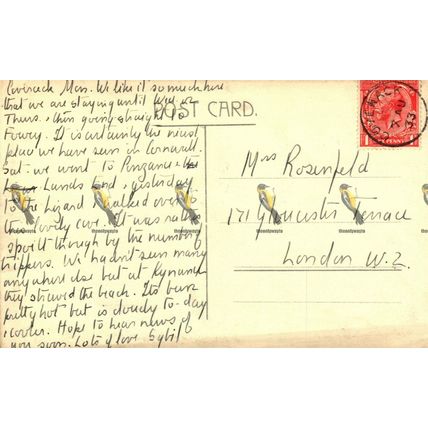 Coverack Mon. We like it so much here
that we are staying until Wed or
Thurs. & then going straight to
Fowey. It is certainly the nicest
place we have seen in Cornwall.
Sat. we went to Penzance &
Lands End, & yesterday
to the Lizard & walked over
lovely cove. It was rather
spoilt though by the number of
trippers. We hadn't seen many
anywhere else but at Kynance
they strewed the beach. Its been
pretty hot but is cloudy to-day
& cooler. Hope to hear news of
you soon. Lots of love Sybil
POST CARD.
COVERACK
AU
33
Mrs Rosenfeld
171 Gloucester Terrace
London W.2.
theoldpostcards